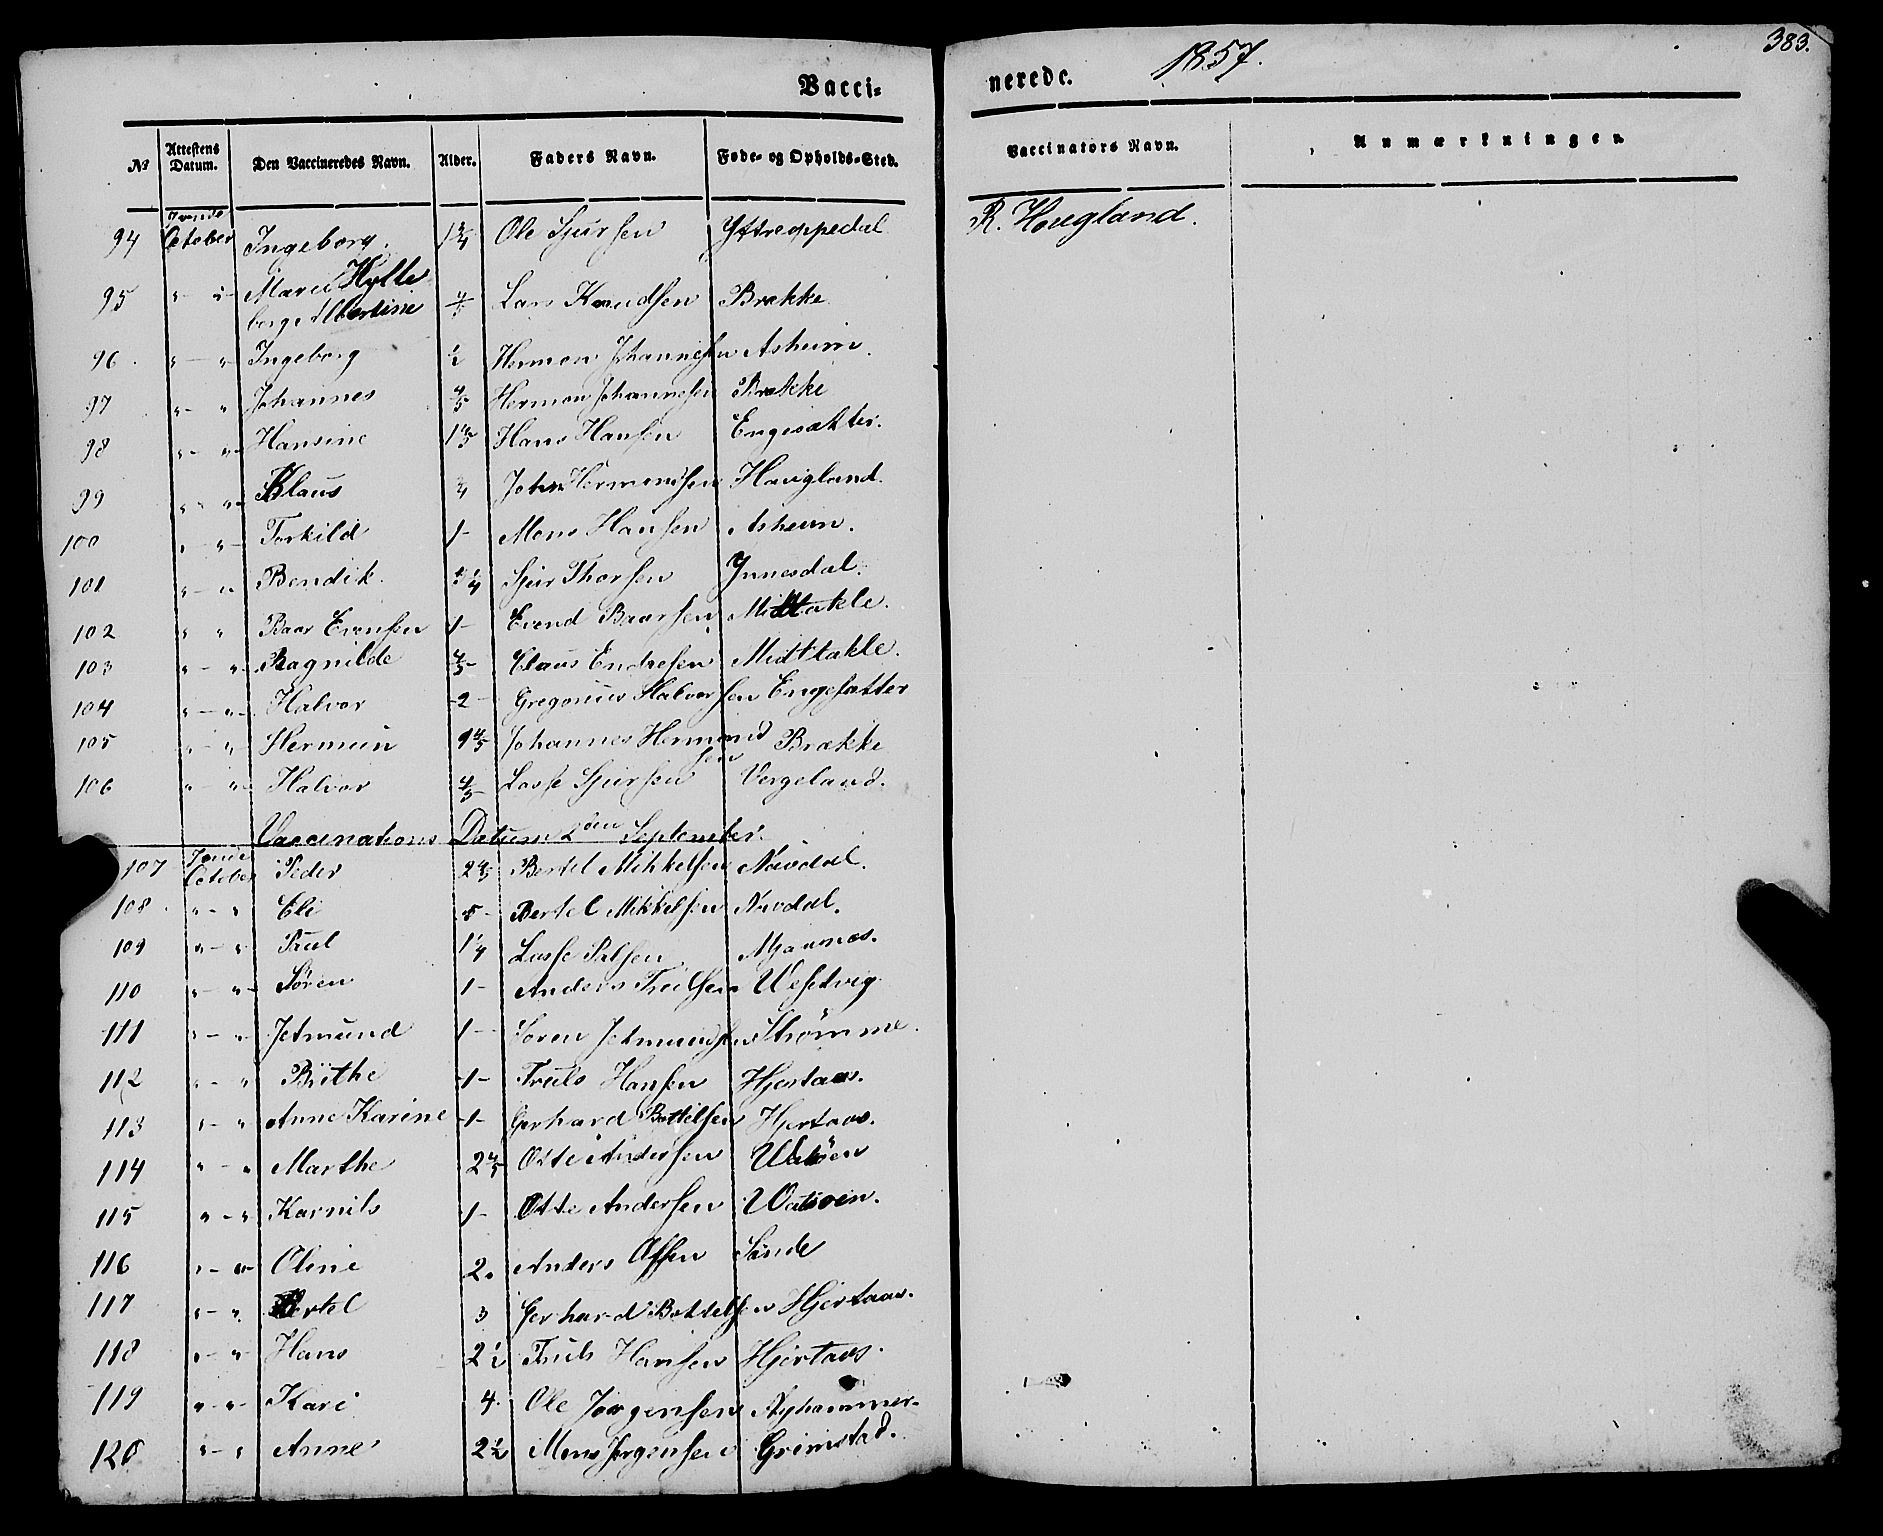 Vacci-
nerede.
1857.
383.
No Attestens Datum. Den Vaccineredes Navn. Alder. Faders Navn. Føde- og Opholds-Sted. Vaccinators Navn. Anmærkninger.
94 October Ingeborg. 1 3/4 Ole Sjursen Yttreoppedal R. Hougland.
95 " " Maren Hylle
borg Albertine 4/5 Lars Knudsen Brække
96. " " Ingeborg 1/2 Hermon Johannesen Asheim.
97 " " Johannes 4/5 Hermon Johannesen Brække
98 " " Hansine 1 4/5 Hans Hansen Engesætter.
99 " " Klaus 3/4 John Hermondsen Haugland.
100 " " Torkild 1- Mons Hansen Asheim.
101 " " Bendik. Sjur Thorsen Ynnesdal.
102 " " Baar Evensen 1- Evend Baarsen Midttakle.
103 " " Ragnilde 4/5- Claus Endresen Midttakle.
104 " " Halvor -2- Gregorius Halvorsen Engesætter
105 " " Hermun Johannes Hermond
sen Brække
106 " " Halvor 4/5- Lasse Sjursen Vergeland.
Vaccinations Datum 2den September.
107 October Peder 2 4/5 Bertel Mikkelsen Nävdal.
108. " " Eli 5- Bertel Mikkelsen Nävdal.
109 " " Paul 1 1/4 Lasse Palsen Mjaunes.
110 " " Søren 1- Anders Trulsen Westvig
111 " " Jetmund 1- Søren Jetmundsen Strømme.
112 " " Brithe -1- Truls Hansen Hjertaas.
113 " " Anne Karine -1- Gerhard Bottelsen Hjertaas.
114 " " Marthe 2 4/5 Otte Andersen Watöen
115 " " Karnils 1- Otte Andersen Watöen.
116 " " Oline 2. Anders Olsen Sande
117 " " Bertel 3 Gerhard Bottelsen Hjertaas.
118 " " Hans 2 1/2 Truls Hansen Hjertaas.
119 " " Kari 4. Ole Jørgensen Nyhammer.
120 " " Anne 2 1/2 Mons Jørgensen Grimstad.